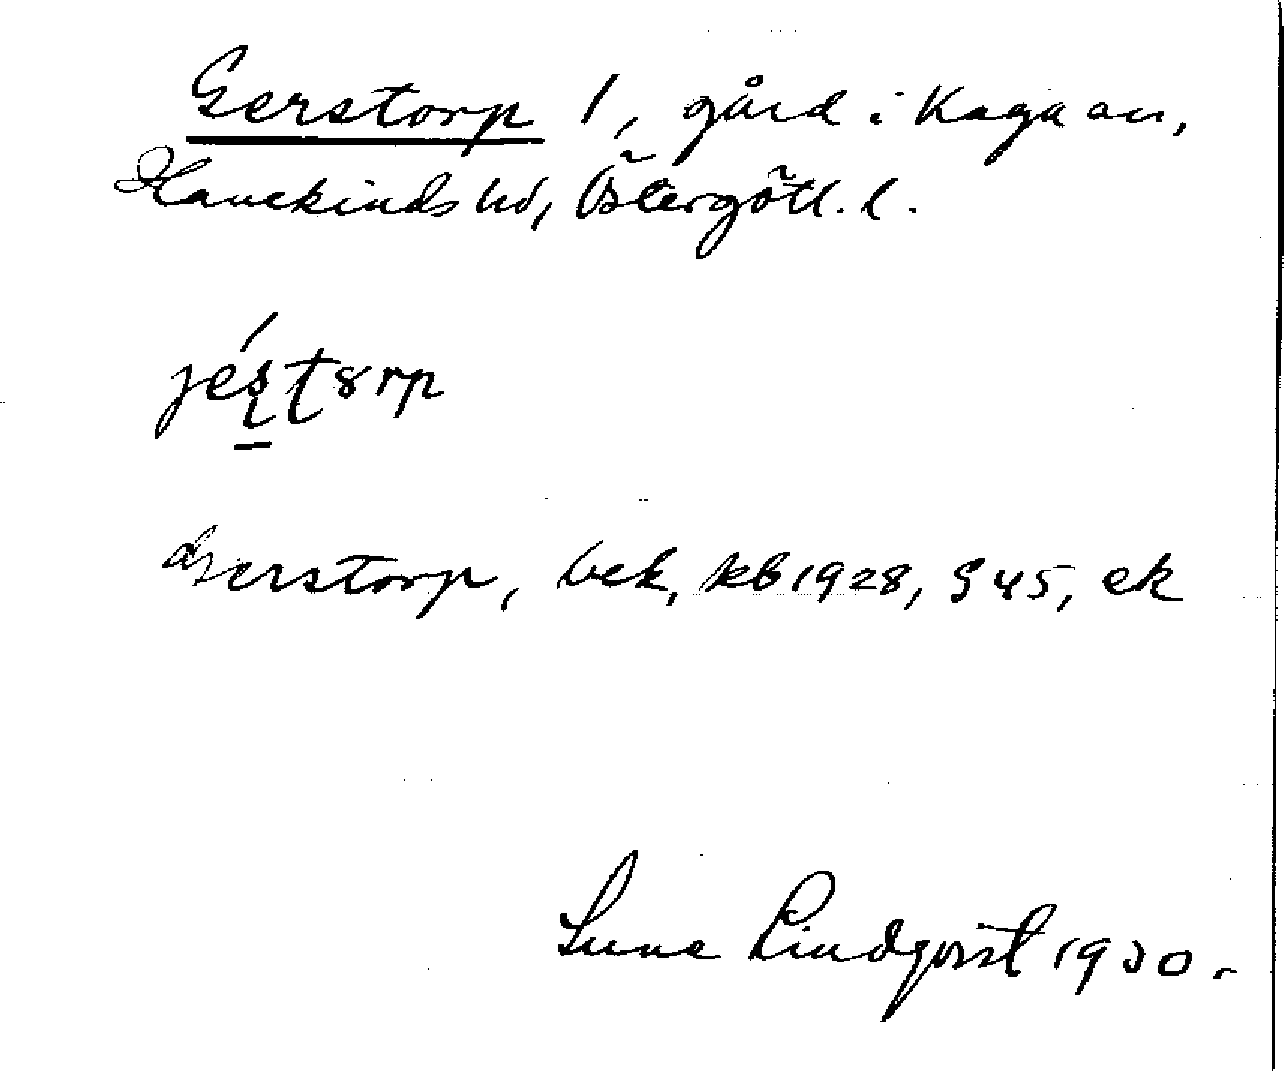 Gerstorp 1, gård i Kaga sn,
Hanekinds hd, Östergötl. l.
Gerstorp, bek, kb 1928, § 45, ek
Sune Lindqvist 1930.